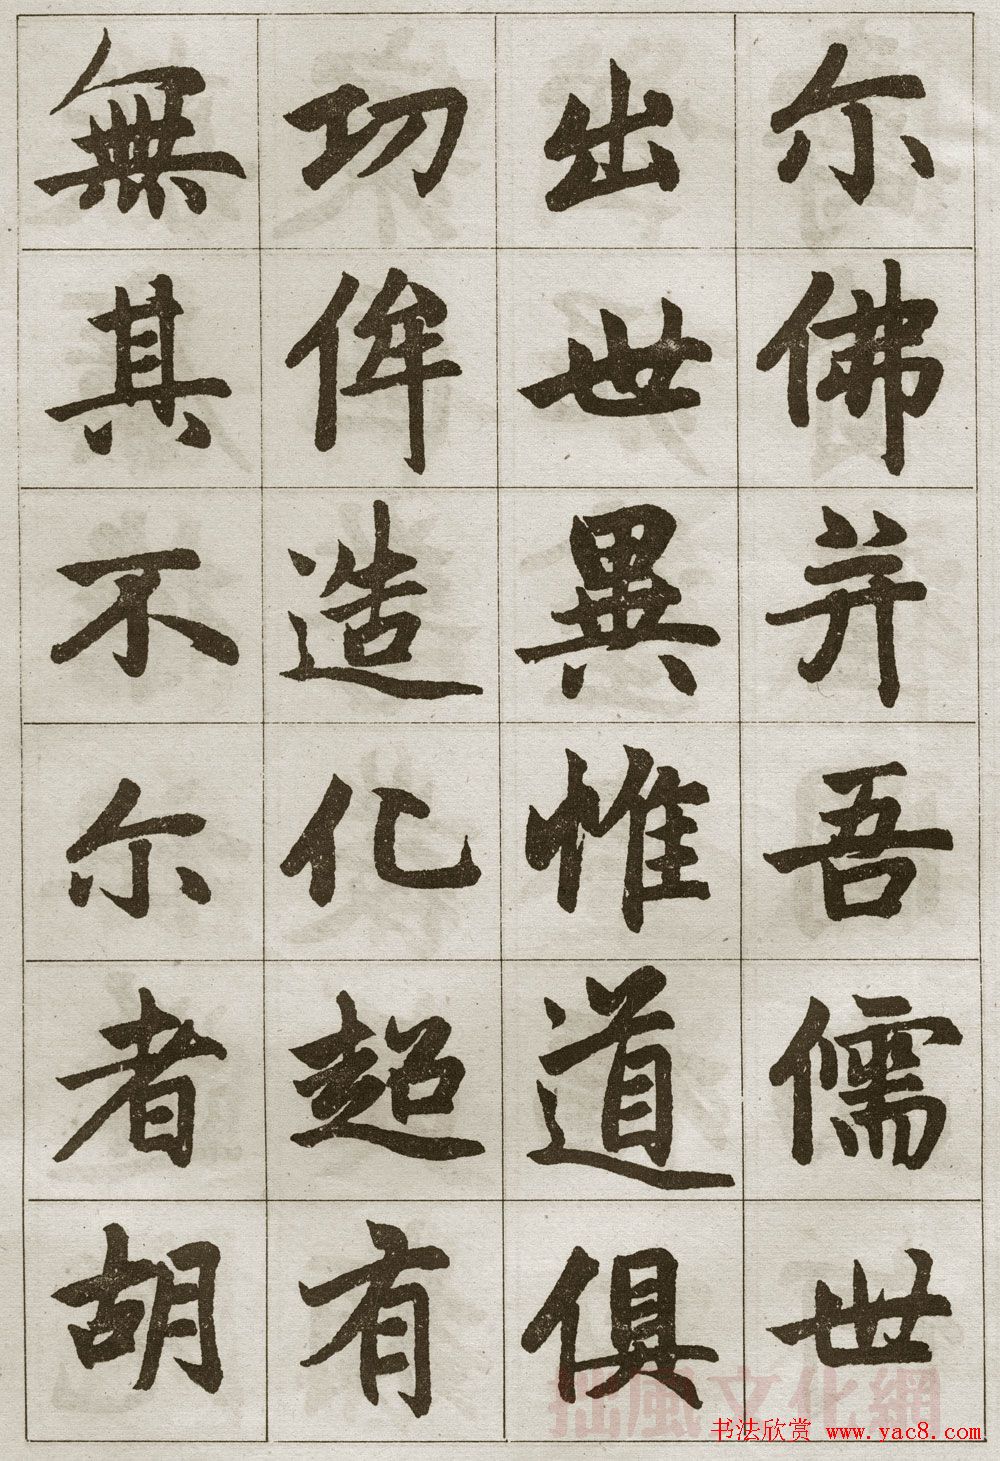 尔佛并吾儒世
出世異惟道俱
功侔造化超有
無其不尔者胡
拙風文化網
书法欣赏 www.yac8.com